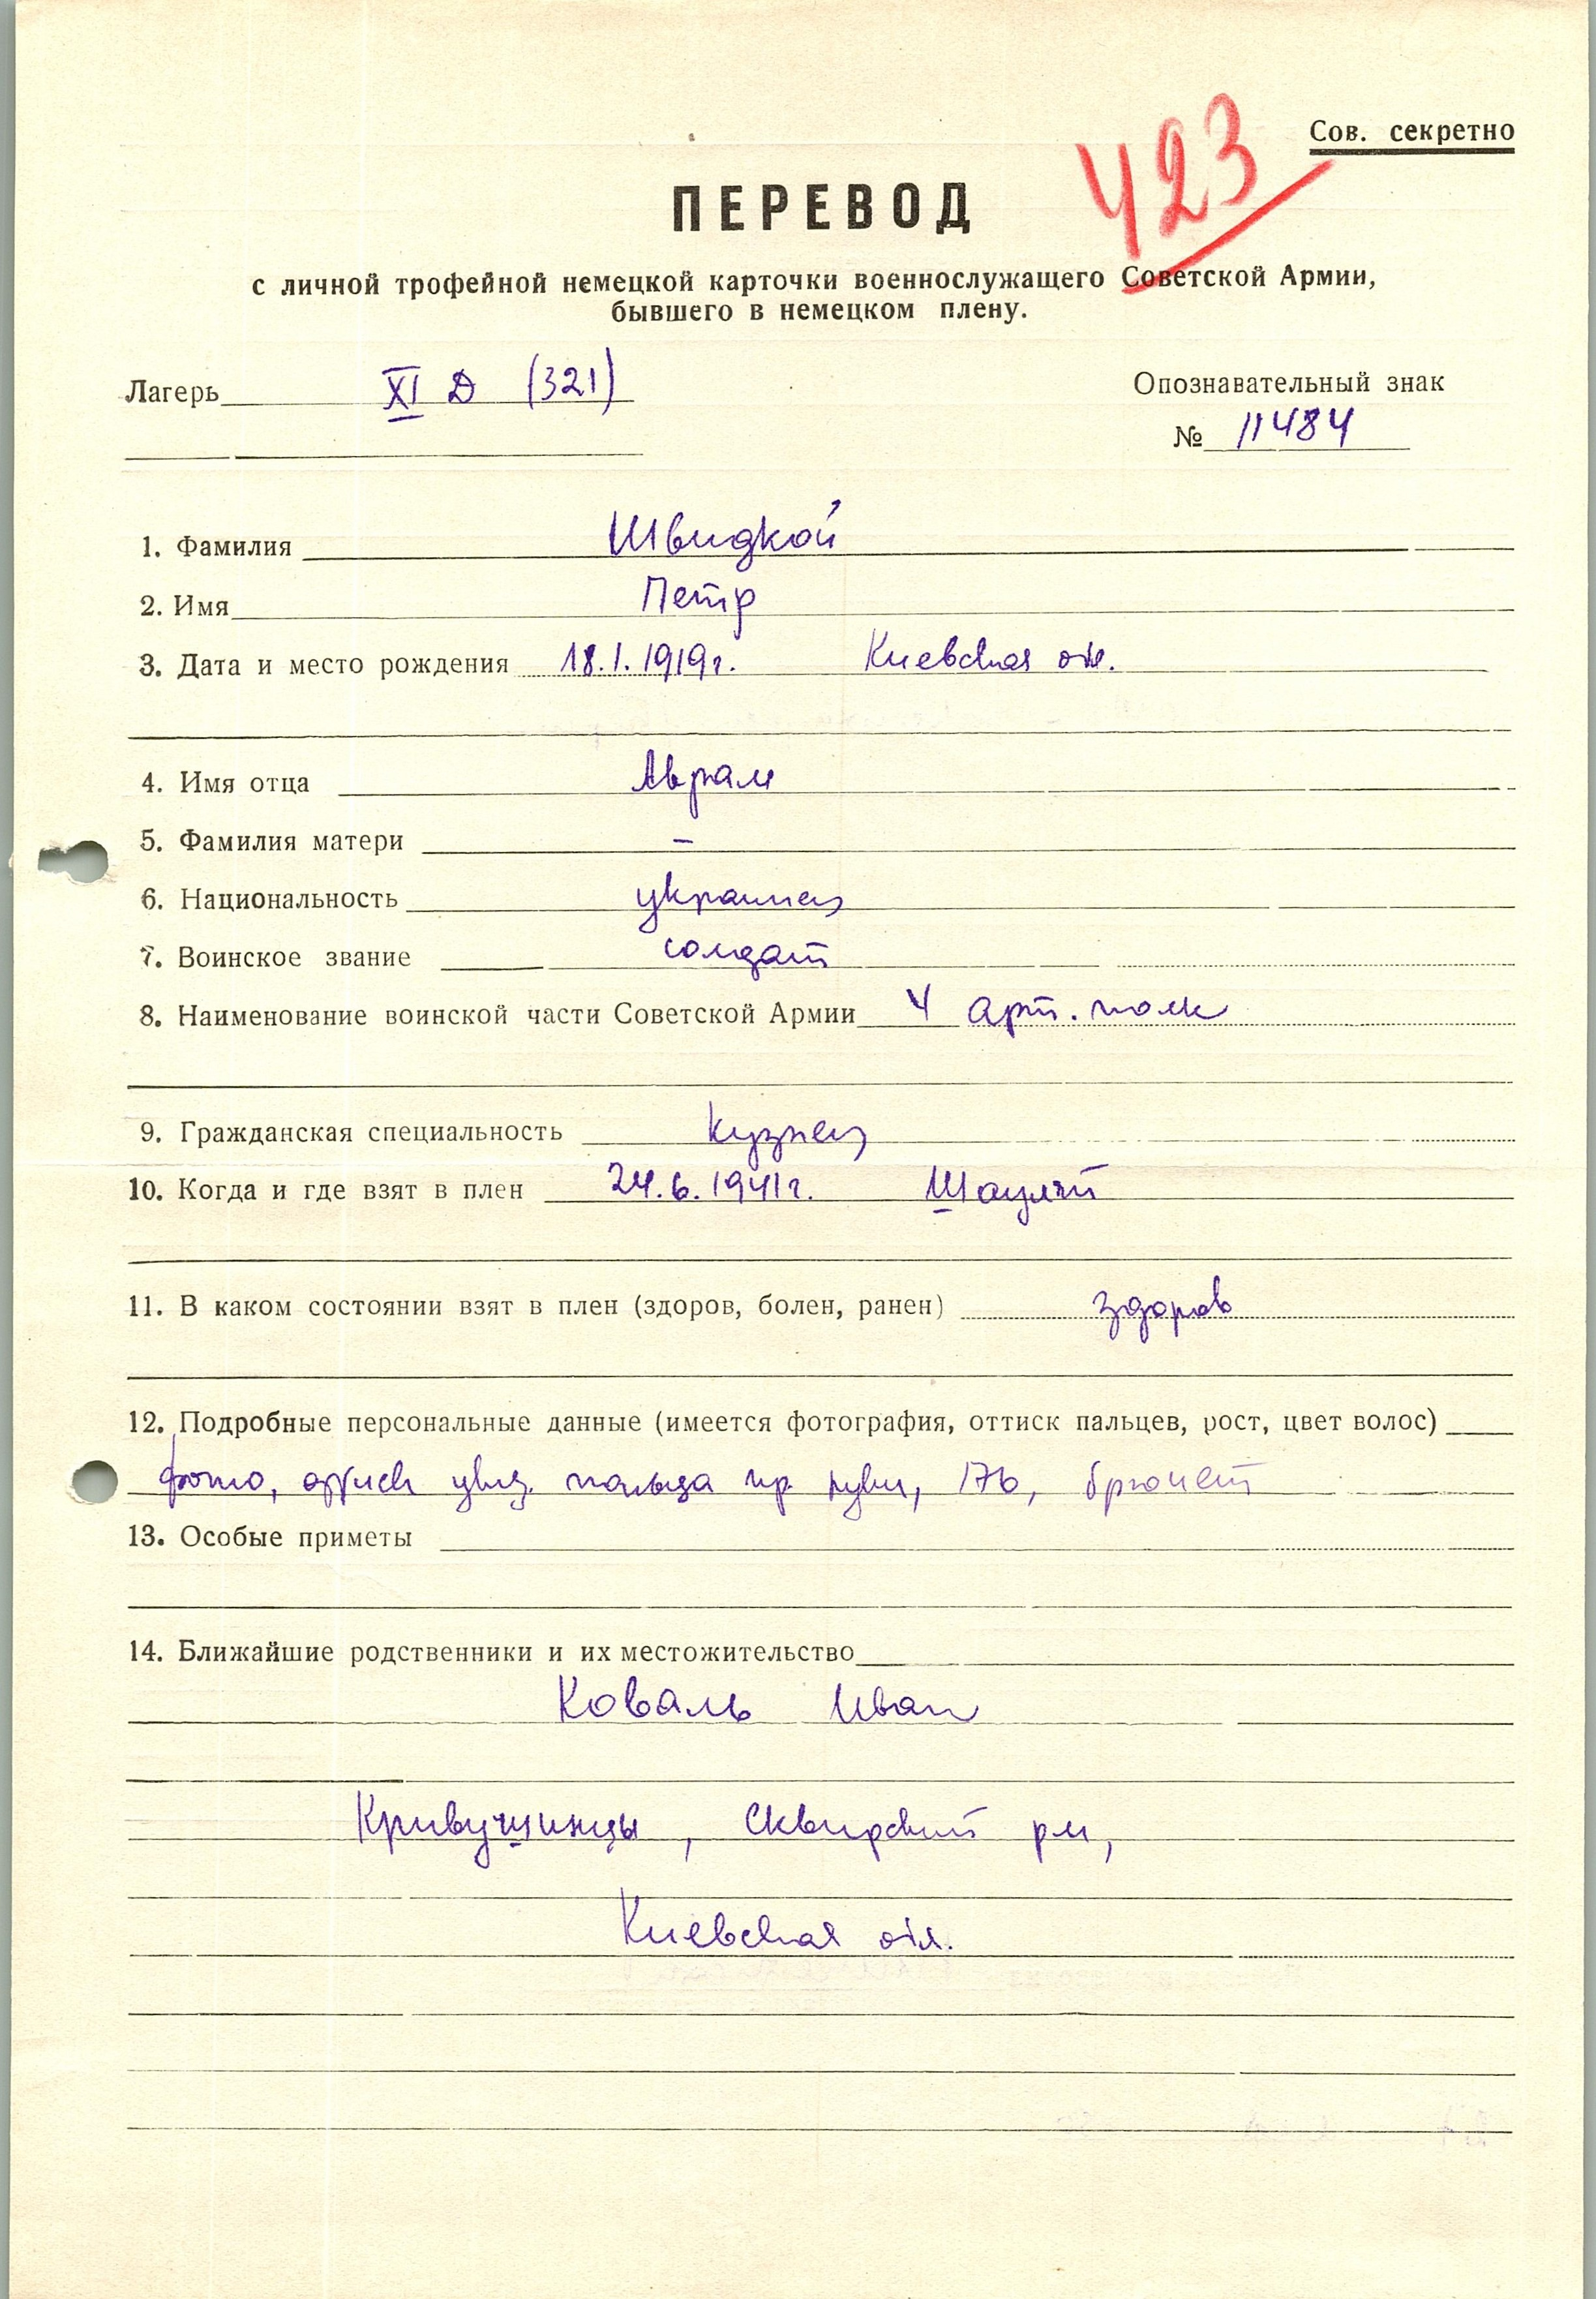 Сов. секретно
423
ПЕРЕВОД
с личной трофейной немецкой карточки военнослужащего Советской Армии,
бывшего в немецком плену.
Лагерь XI D (321)
Опознавательный знак
№ 11484
1. Фамилия Швидкой
2. Имя Петр
3. Дата и место рождения 18.1.1919г. Киевская обл.
4. Имя отца Аврам
5. Фамилия матери –
6. Национальность украинец
7. Воинское звание солдат
8. Наименование воинской части Советской Армии 4 арт. полк
9. Гражданская специальность кузнец
10. Когда и где взят в плен 24.6.1941г. Шауляй
11. В каком состоянии взят в плен (здоров, болен, ранен) здоров
12. Подробные персональные данные (имеется фотография, оттиск пальцев, рост, цвет волос)
фото, оттиск указ. пальца пр. руки, 176, брюнет
13. Особые приметы
14. Ближайшие родственники и их местожительство
Коваль Иван
Кривушинцы, Сквирский рн,
Киевская обл.